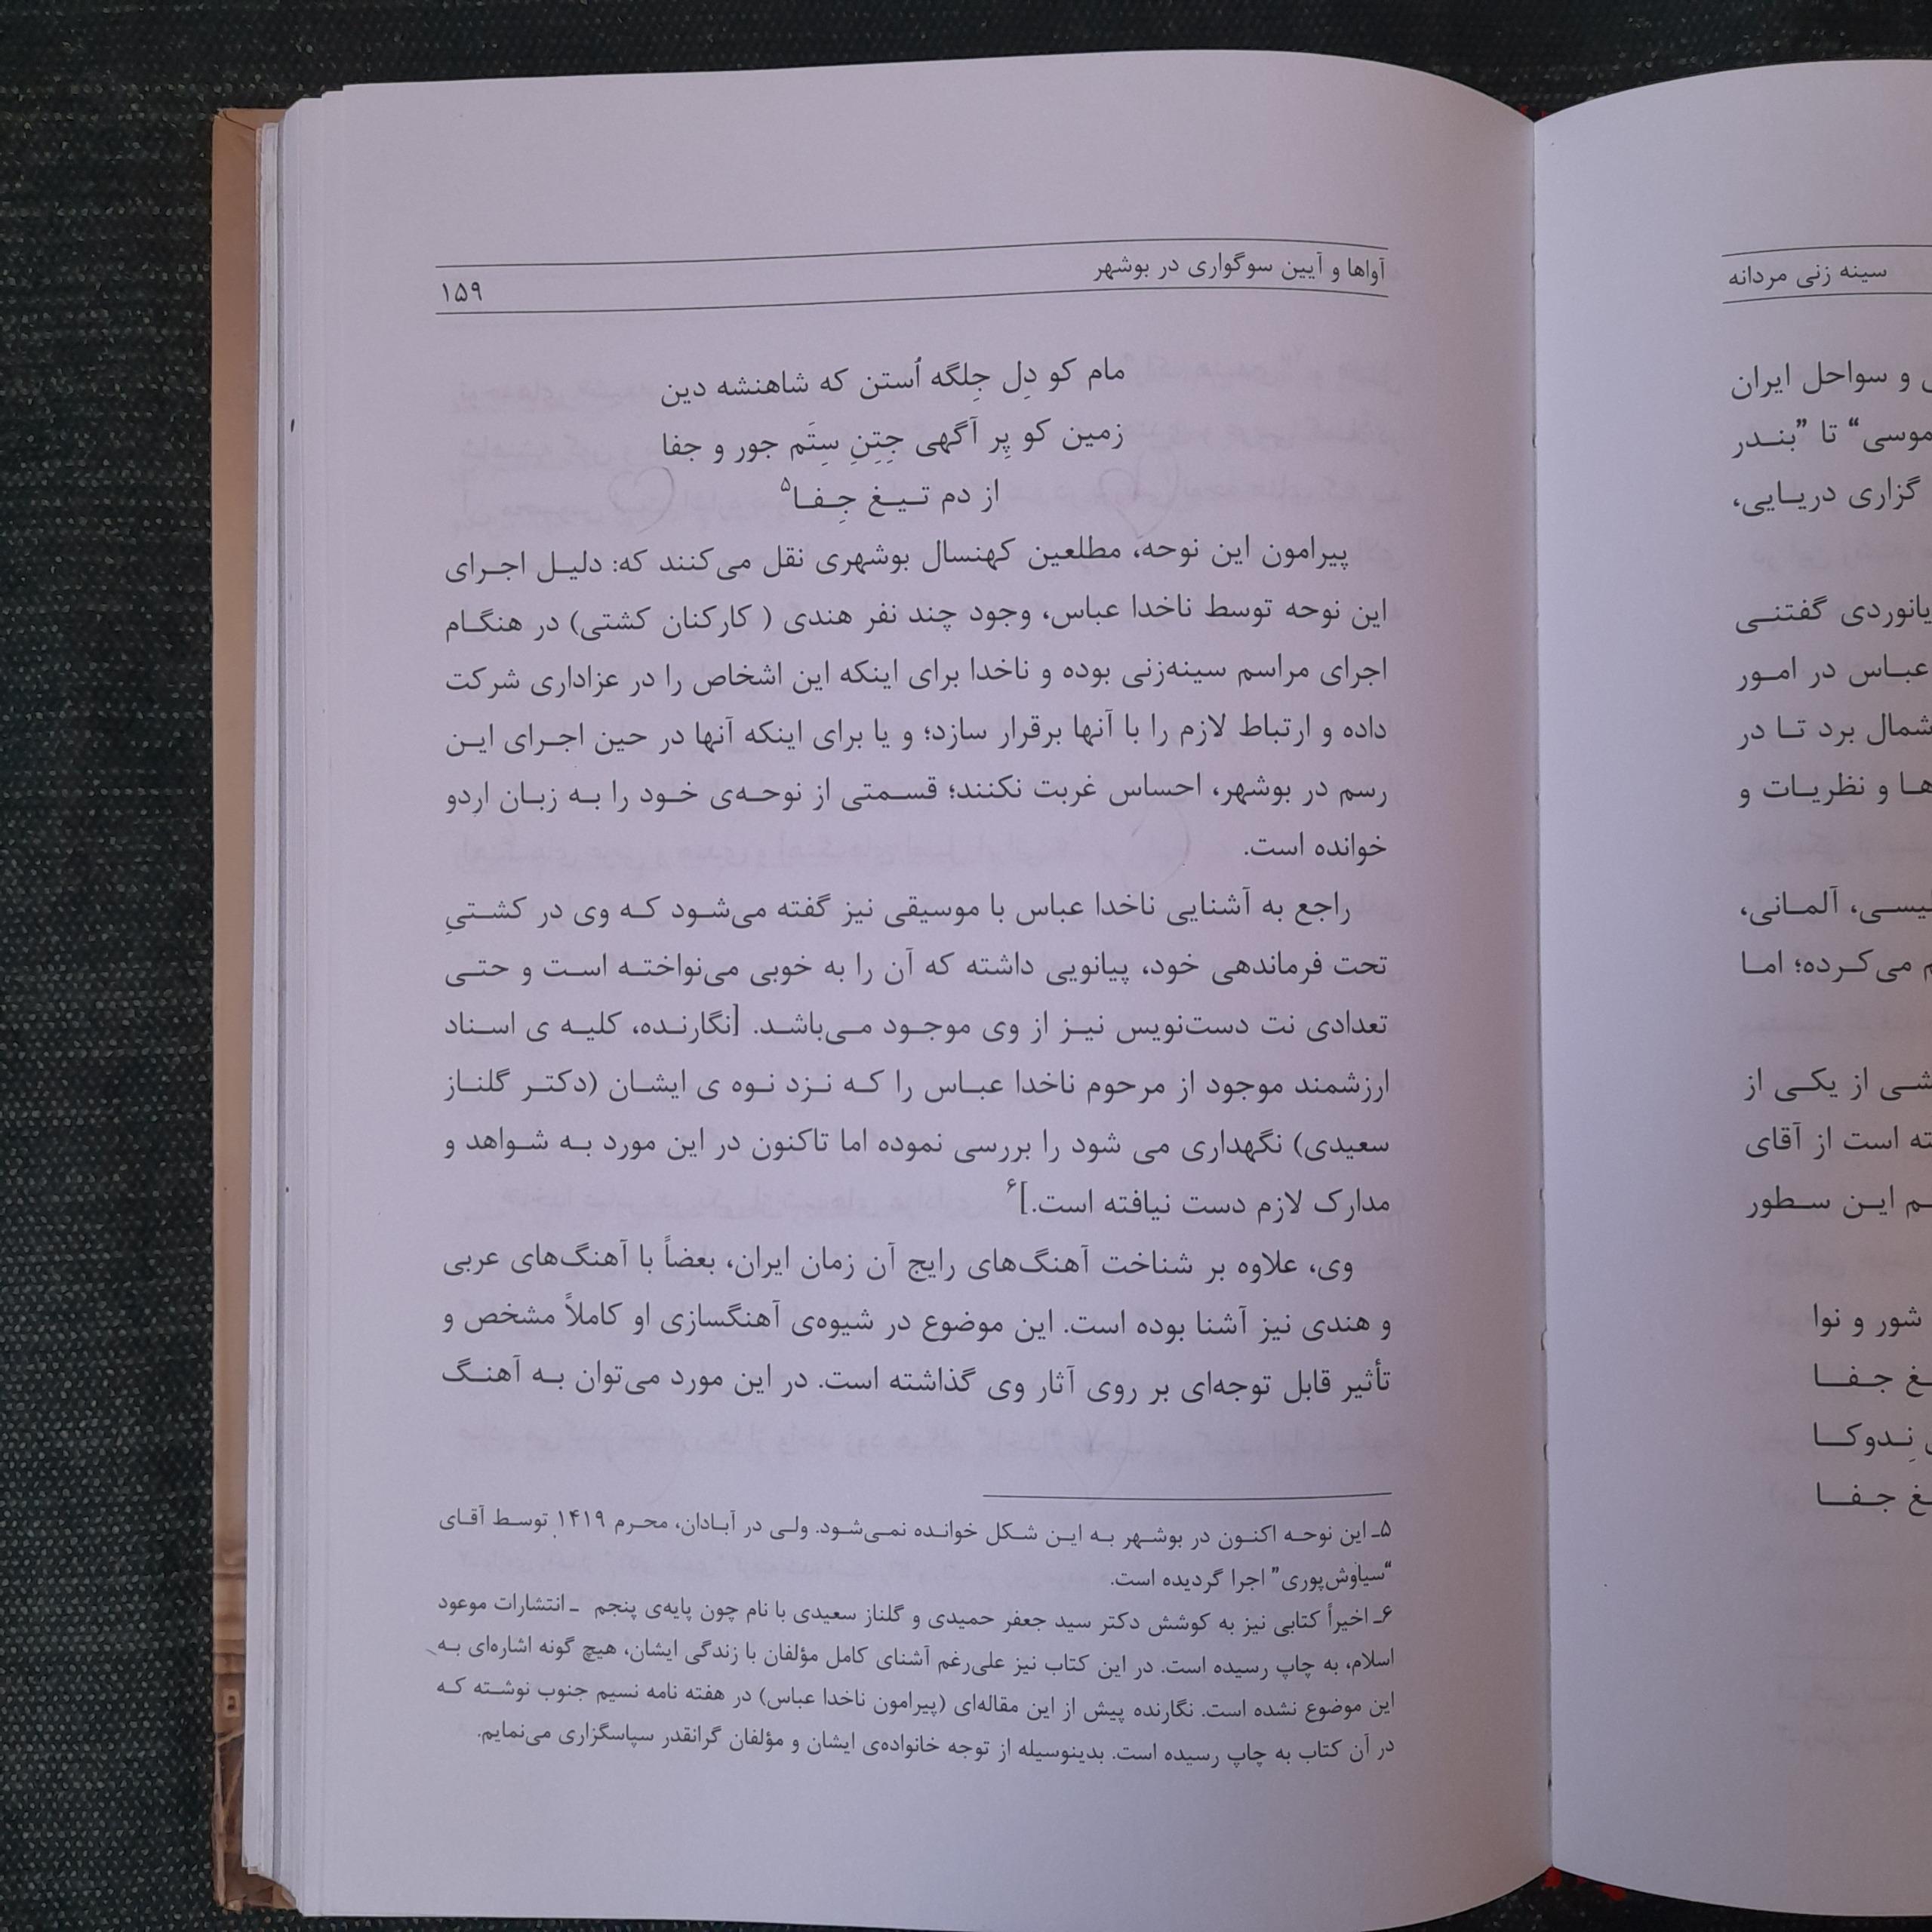 آواها و آیین سوگواری در بوشهر
۱۵۹
مام کو دِل جِلگه اُستن که شاهنشه دین
زمین کو پِر آگهی جِتِنِ سِتَم جور و جفا
از دم تیغ جِفا۵
پیرامون این نوحه، مطلعین کهنسال بوشهری نقل می‌کنند که: دلیل اجرای
این نوحه توسط ناخدا عباس، وجود چند نفر هندی ( کارکنان کشتی) در هنگام
اجرای مراسم سینه‌زنی بوده و ناخدا برای اینکه این اشخاص را در عزاداری شرکت
داده و ارتباط لازم را با آنها برقرار سازد؛ و یا برای اینکه آنها در حین اجرای این
رسم در بوشهر، احساس غربت نکنند؛ قسمتی از نوحه‌ی خود را به زبان اردو
خوانده است.
راجع به آشنایی ناخدا عباس با موسیقی نیز گفته می‌شود که وی در کشتیِ
تحت فرماندهی خود، پیانویی داشته که آن را به خوبی می‌نواخته است و حتی
تعدادی نت دست‌نویس نیز از وی موجود می‌باشد. [نگارنده، کلیه ی اسناد
ارزشمند موجود از مرحوم ناخدا عباس را که نزد نوه ی ایشان (دکتر گلناز
سعیدی) نگهداری می شود را بررسی نموده اما تاکنون در این مورد به شواهد و
مدارک لازم دست نیافته است.]۶
وی، علاوه بر شناخت آهنگ‌های رایج آن زمان ایران، بعضاً با آهنگ‌های عربی
و هندی نیز آشنا بوده است. این موضوع در شیوه‌ی آهنگسازی او کاملاً مشخص و
تأثیر قابل توجه‌ای بر روی آثار وی گذاشته است. در این مورد می‌توان به آهنگ
۵ـ این نوحه اکنون در بوشهر به این شکل خوانده نمی‌شود. ولی در آبادان، محرم ۱۴۱۹ توسط آقای
“سیاوش‌پوری” اجرا گردیده است.
۶ـ اخیراً کتابی نیز به کوشش دکتر سید جعفر حمیدی و گلناز سعیدی با نام چون پایه‌ی پنجم ـ انتشارات موعود
اسلام، به چاپ رسیده است. در این کتاب نیز علی‌رغم آشنای کامل مؤلفان با زندگی ایشان، هیچ گونه اشاره‌ای به
این موضوع نشده است. نگارنده پیش از این مقاله‌ای (پیرامون ناخدا عباس) در هفته نامه نسیم جنوب نوشته که
در آن کتاب به چاپ رسیده است. بدینوسیله از توجه خانواده‌ی ایشان و مؤلفان گرانقدر سپاسگزاری می‌نمایم.
سینه زنی مردانه
و سواحل ایران
موسی“ تا ”بندر
گزاری دریایی،
گفتنی
عباس در امور
شمال برد تا در
و نظریات و
آلمانی،
می‌کرده؛ اما
از یکی از
است از آقای
این سطور
شور و نوا
جفا
نِدوکا
جفا